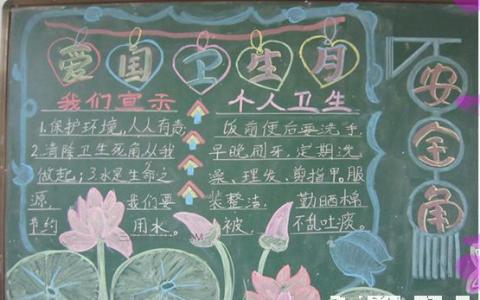 爱国卫生月
我们宣示
1.保护环境,人人有责
2.清除卫生死角从我
做起;3水是生命之
源, 我们要
节约 用水。
个人卫生
饭前便后要洗手
早晚刷牙,定期洗
澡、理发、剪指甲,服
装整洁, 勤晒棉
被, 不乱吐痰。
安全角